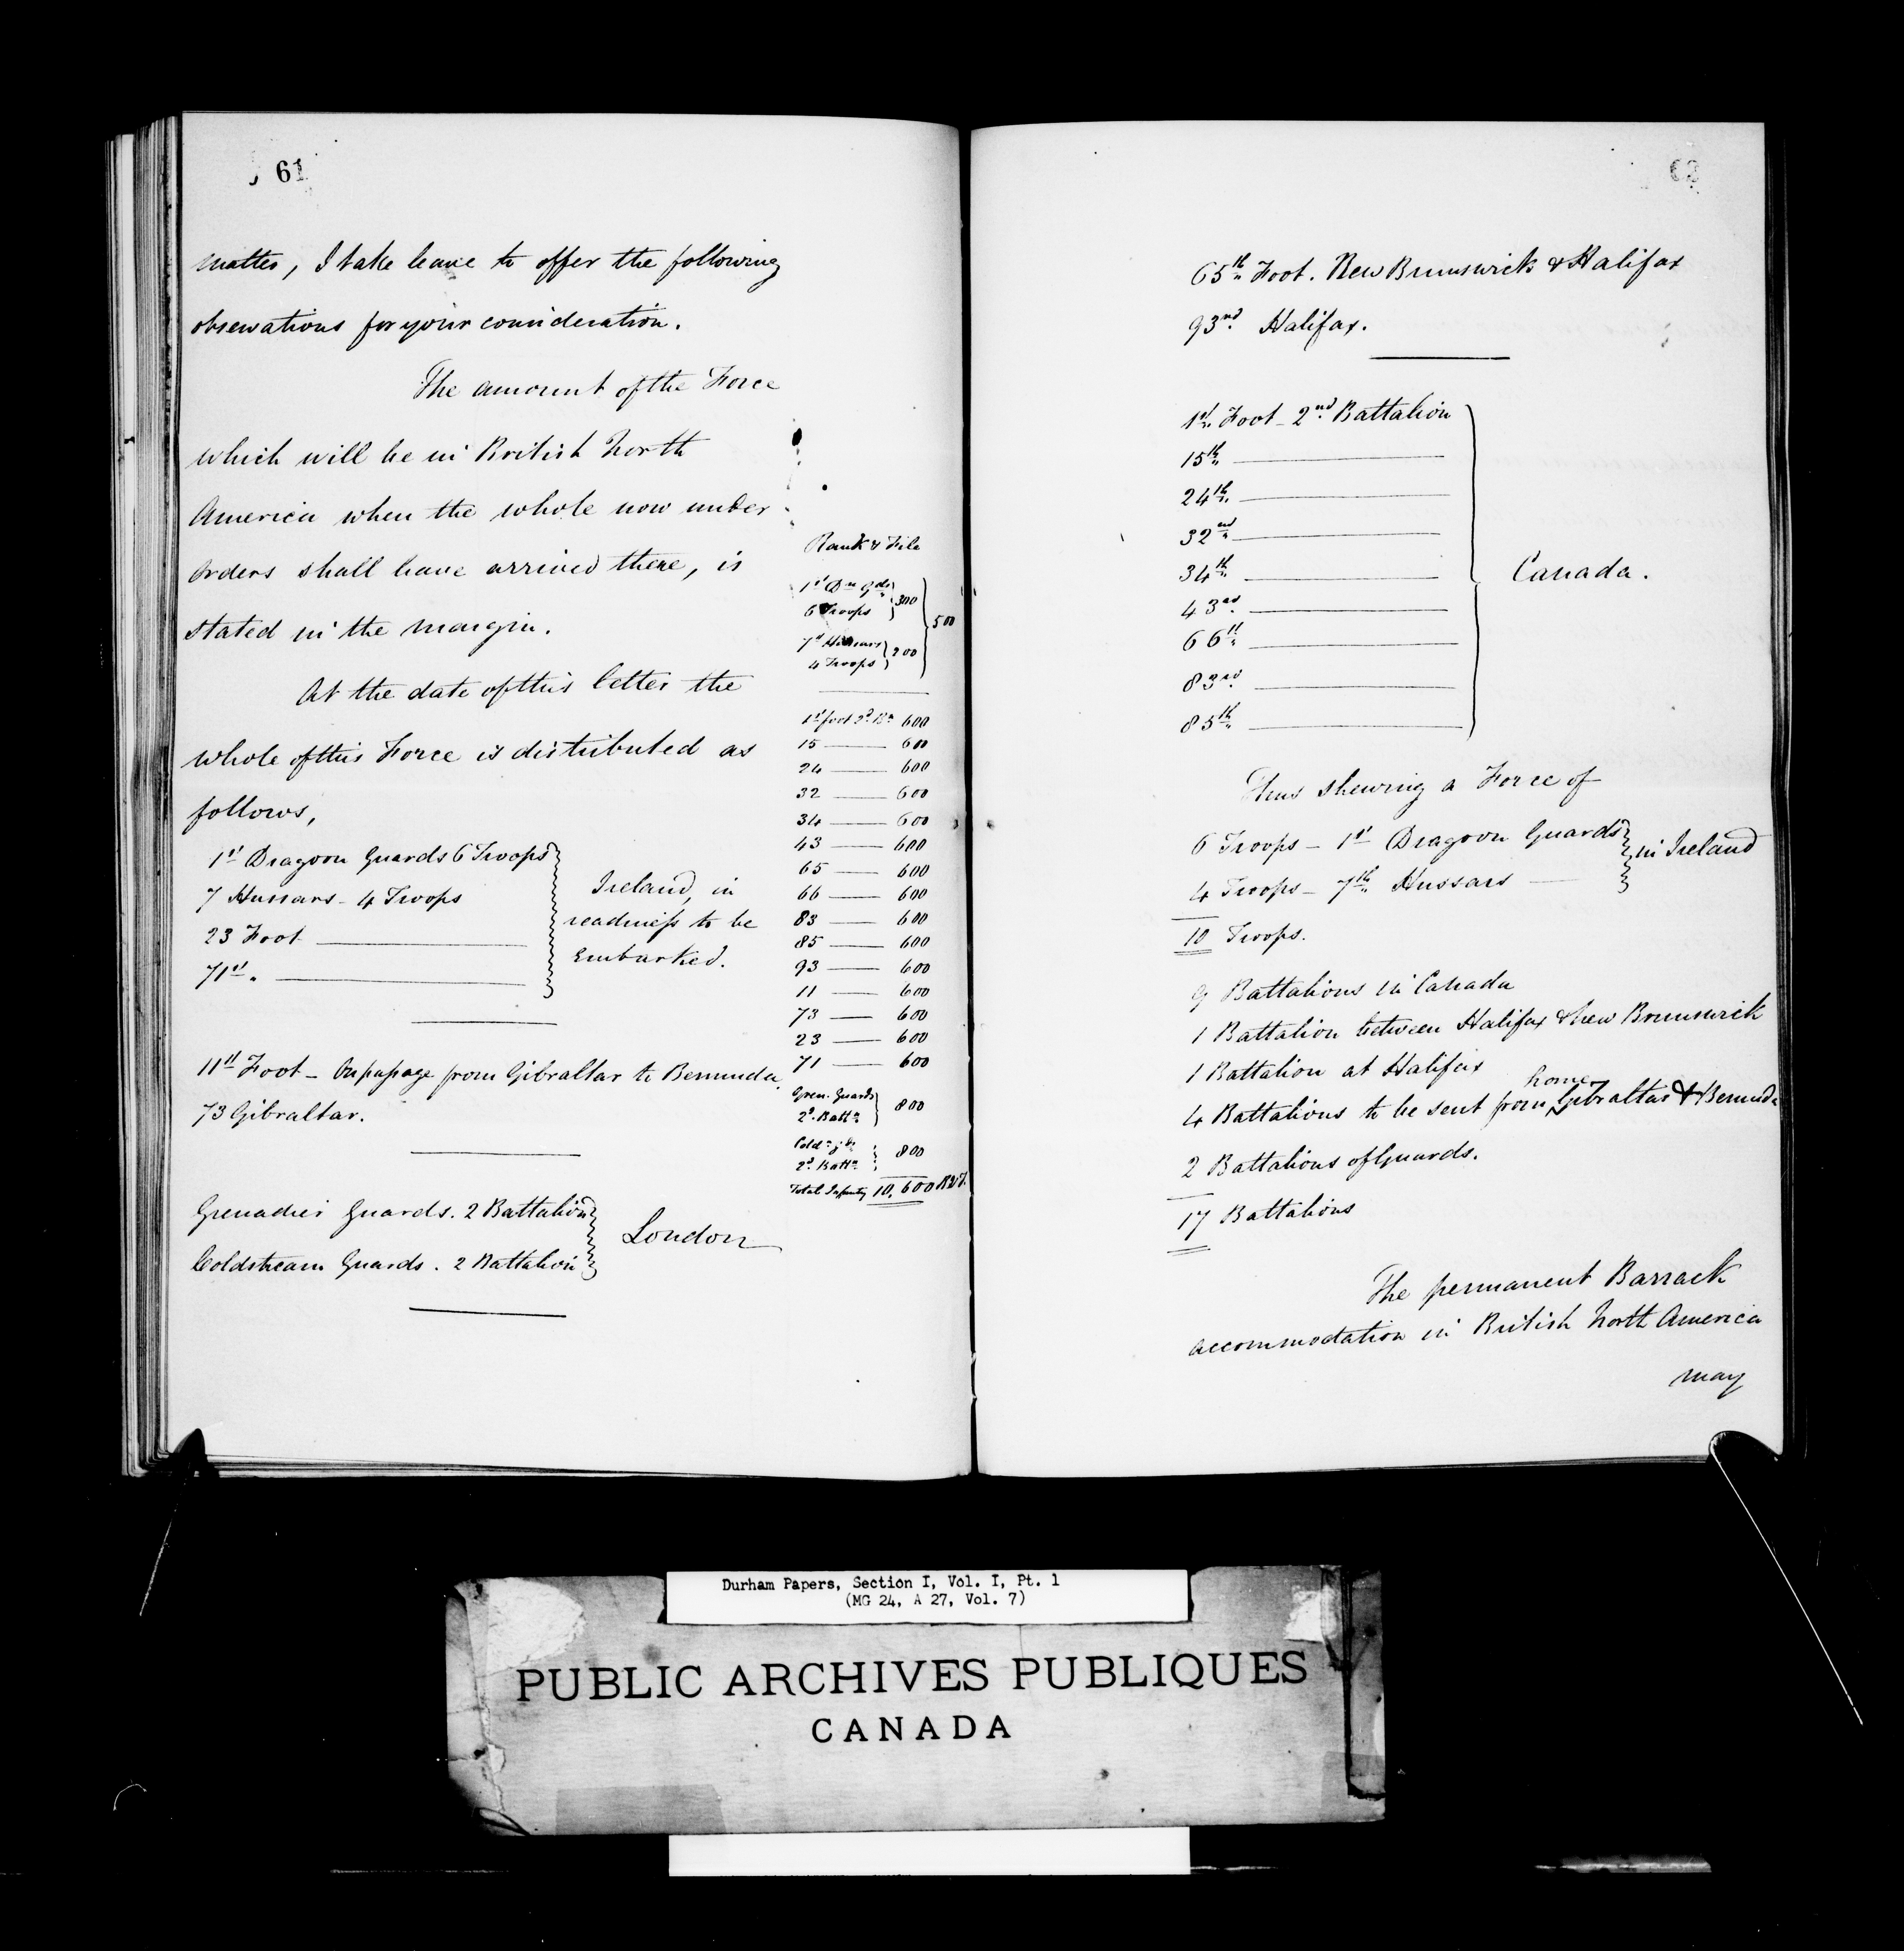 61
matter, I take leave to offer the following
observations for your consideration.
The amount of the Force
which will be in British North
America when the whole now under
orders shall have arrived there, is
stated in the margin.
At the date of this letter the
whole of this Force is distributed as
follows,
1st Dragoon Guards 6 Troops
7 Hussars - 4 Troops
23 Foot
71st "
Ireland, in
readiness to be
Embarked.
11th Foot - On passage from Gibraltar to Bermuda.
73 Gibraltar.
Grenadier Guards. 2 Battalion
Coldstream Guards. 2 Battalion
London
Rank & File
1st Dn Gds
6 Troops } 300
7th Hussars
4 Troops } 200
500
1st foot 2d Bn 600
15 600
24 600
32 600
34 600
43 600
65 600
66 600
83 600
85 600
93 600
11 600
73 600
23 600
71 600
Gren. Guards
2d Battn } 800
Cold. Gds
2d Battn } 800
Total Infantry 10,600 R & F.
62
65th Foot. New Brunswick & Halifax
93nd Halifax.
1st Foot - 2nd Battalion
15th
24th
32nd
34th
43rd
66th
83rd
85th
Canada.
Thus shewing a Force of
6 Troops - 1st Dragoon Guards
4 Troops - 7th Hussars
in Ireland
10 Troops.
9 Battalions in Canada
1 Battalion between Halifax & New Brunswick
1 Battalion at Halifax
4 Battalions to be sent from home, Gibraltar & Bermuda
2 Battalions of Guards.
17 Battalions
The permanent Barrack
accommodation in British North America
may
Durham Papers, Section I, Vol. I, Pt. 1
(MG 24, A 27, Vol. 7)
PUBLIC ARCHIVES PUBLIQUES
CANADA